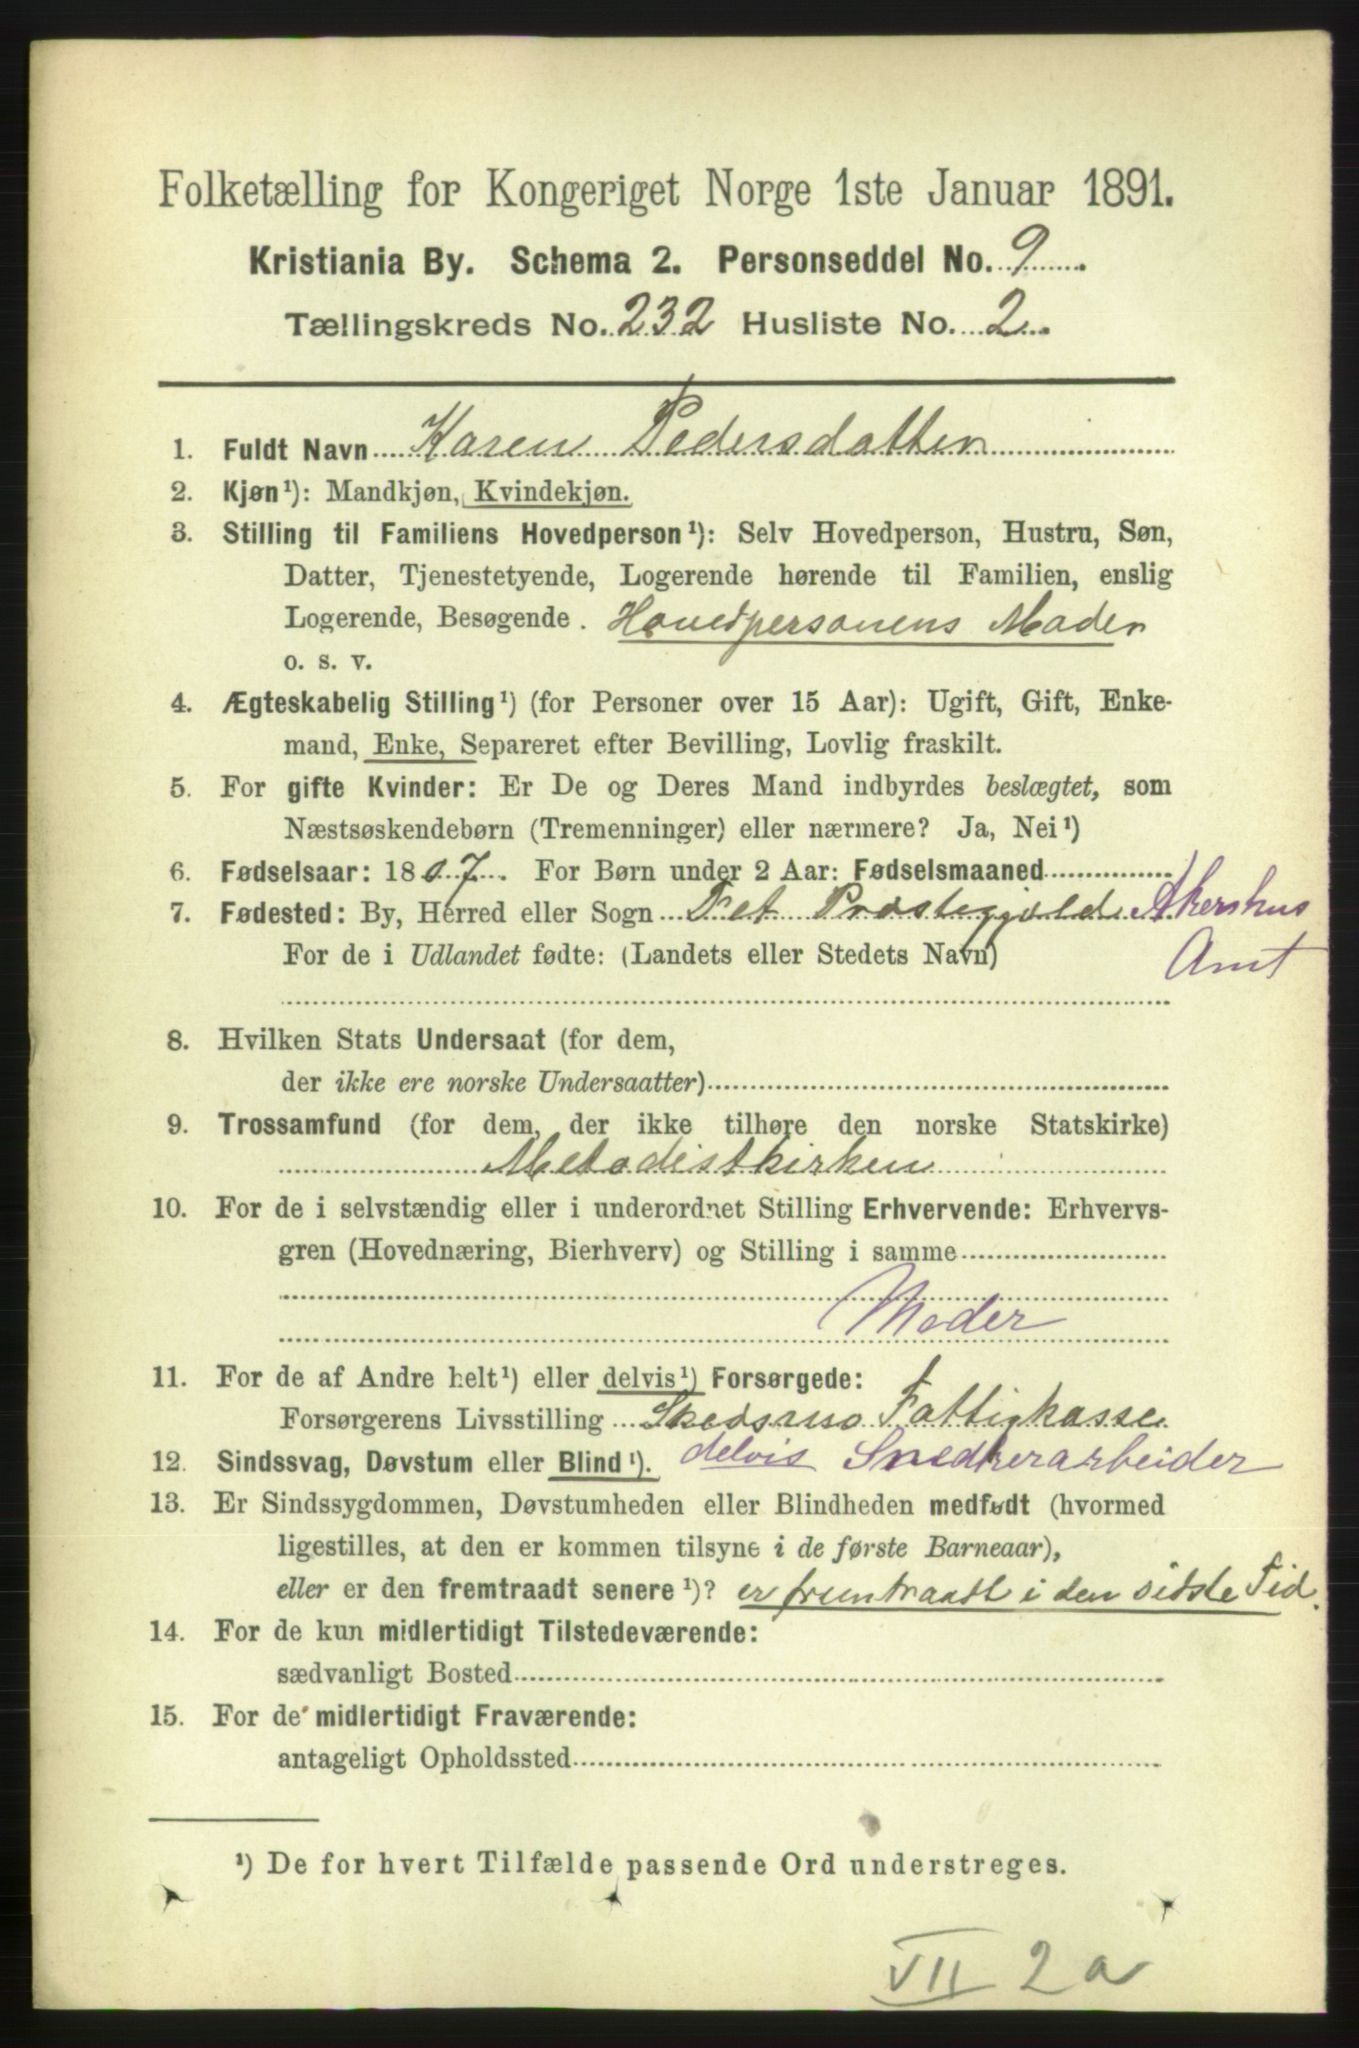 Folketælling for Kongeriget Norge 1ste Januar 1891.
Kristiania By. Schema 2. Personseddel No. 9
Tællingskreds No. 232 Husliste No. 2
1. Fuldt Navn Karen Pedersdatter
2. Kjøn¹): Mandkjøn, Kvindekjøn.
3. Stilling til Familiens Hovedperson¹): Selv Hovedperson, Hustru, Søn,
Datter, Tjenestetyende, Logerende hørende til Familien, enslig
Logerende, Besøgende . Hovedpersonens Moder
o. s. v.
4. Ægteskabelig Stilling¹) (for Personer over 15 Aar): Ugift, Gift, Enke-
mand, Enke, Separeret efter Bevilling, Lovlig fraskilt.
5. For gifte Kvinder: Er De og Deres Mand indbyrdes beslægtet, som
Næstsøskendebørn (Tremenninger) eller nærmere? Ja, Nei¹)
6. Fødselsaar: 1807. For Børn under 2 Aar: Fødselsmaaned
7. Fødested: By, Herred eller Sogn Fet Præstegjæld Akershus
For de i Udlandet fødte: (Landets eller Stedets Navn) Amt
8. Hvilken Stats Undersaat (for dem,
der ikke ere norske Undersaatter)
9. Trossamfund (for dem, der ikke tilhøre den norske Statskirke)
Metodistkirken
10. For de i selvstændig eller i underordnet Stilling Erhvervende: Erhvervs-
gren (Hovednæring, Bierhverv) og Stilling i samme
Moder
11. For de af Andre helt¹) eller delvis¹) Forsørgede:
Forsørgerens Livsstilling Skedsmo Fattigkasse
12. Sindssvag, Døvstum eller Blind¹). delvis Snedkerarbeider
13. Er Sindssygdommen, Døvstumheden eller Blindheden medfødt (hvormed
ligestilles, at den er kommen tilsyne i de første Barneaar),
eller er den fremtraadt senere¹)? er fremtraadt i den sidste Tid.
14. For de kun midlertidigt Tilstedeværende:
sædvanligt Bosted
15. For de midlertidigt Fraværende:
antageligt Opholdssted
¹) De for hvert Tilfælde passende Ord understreges.
VII 2a